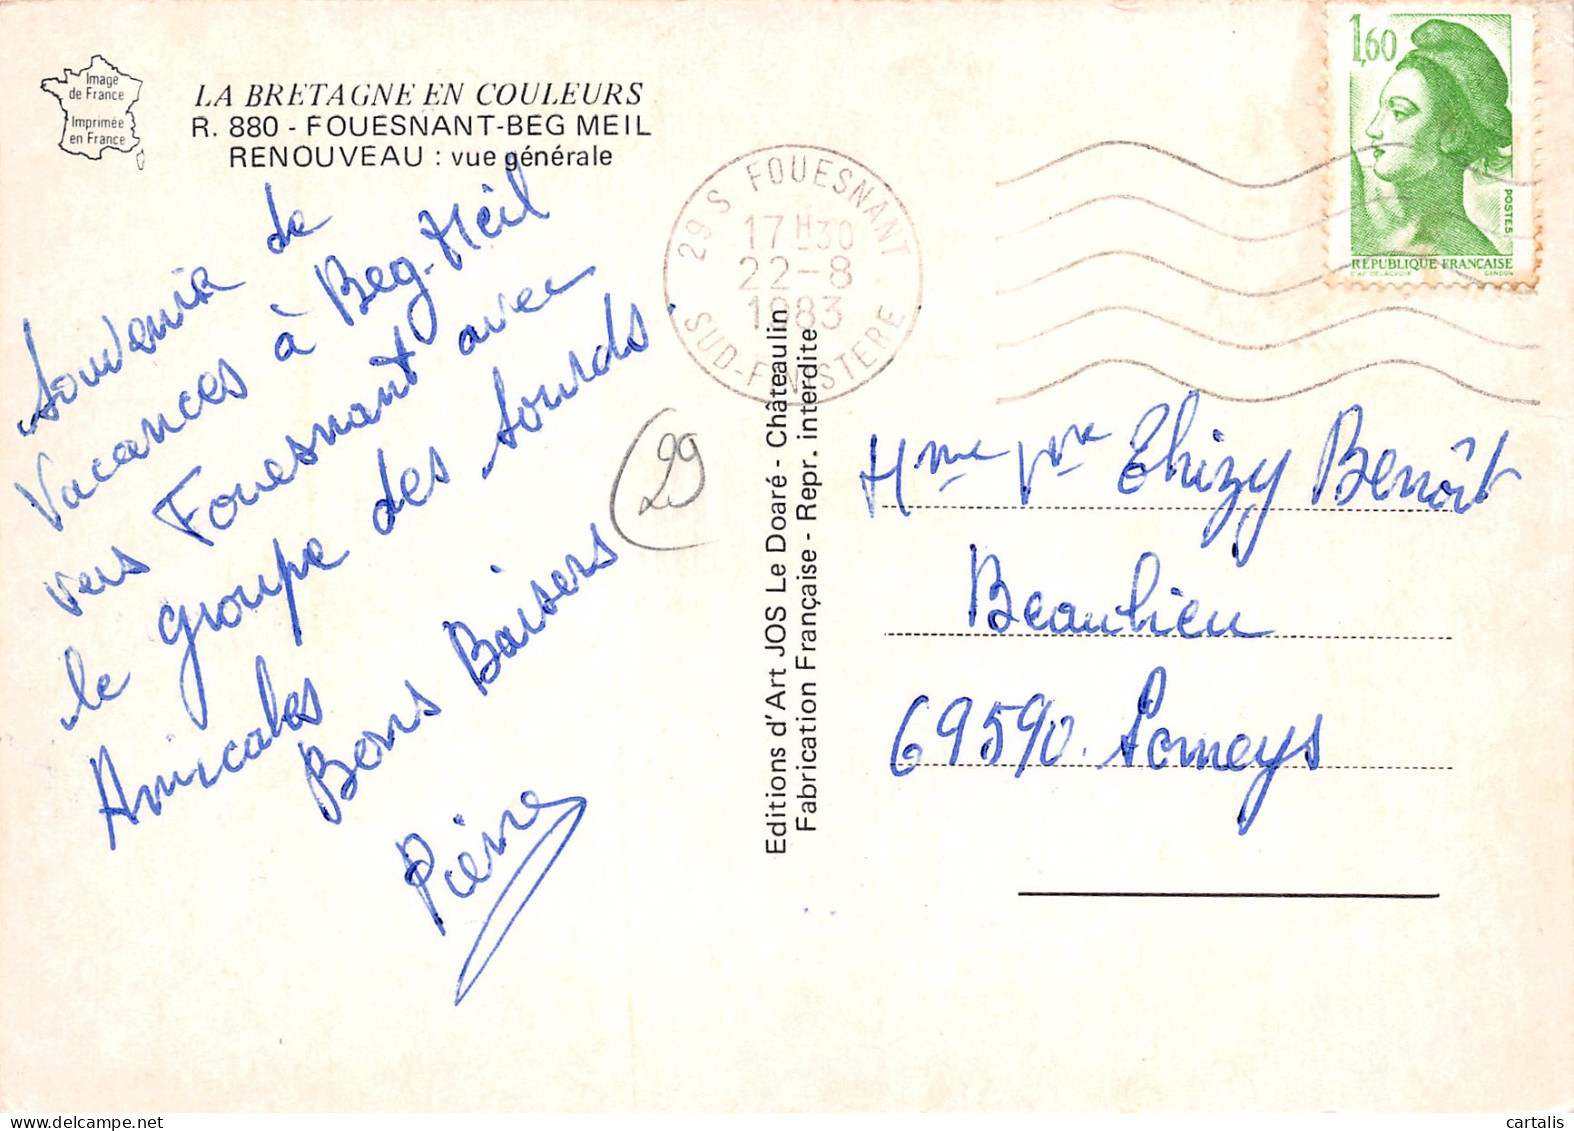 Image
de France
Imprimée
en France
LA BRETAGNE EN COULEURS
R. 880 - FOUESNANT-BEG MEIL
RENOUVEAU : vue générale
Souvenir de
Vacances à Beg-Meil
vers Fouesnant avec
le groupe des sourds.
Amicales
Bons Baisers
Pierre
(29
29 S FOUESNANT
17 H30
22-8
1983
SUD-FINISTERE
Editions d'Art JOS Le Doaré - Châteaulin
Fabrication Française - Repr. interdite
1,60
POSTES
RÉPUBLIQUE FRANÇAISE
D'AP. DELACROIX GANDON
Mme Vve Thizy Benoît
Beaulieu
69590. Pomeys
cartalis
www.delcampe.net